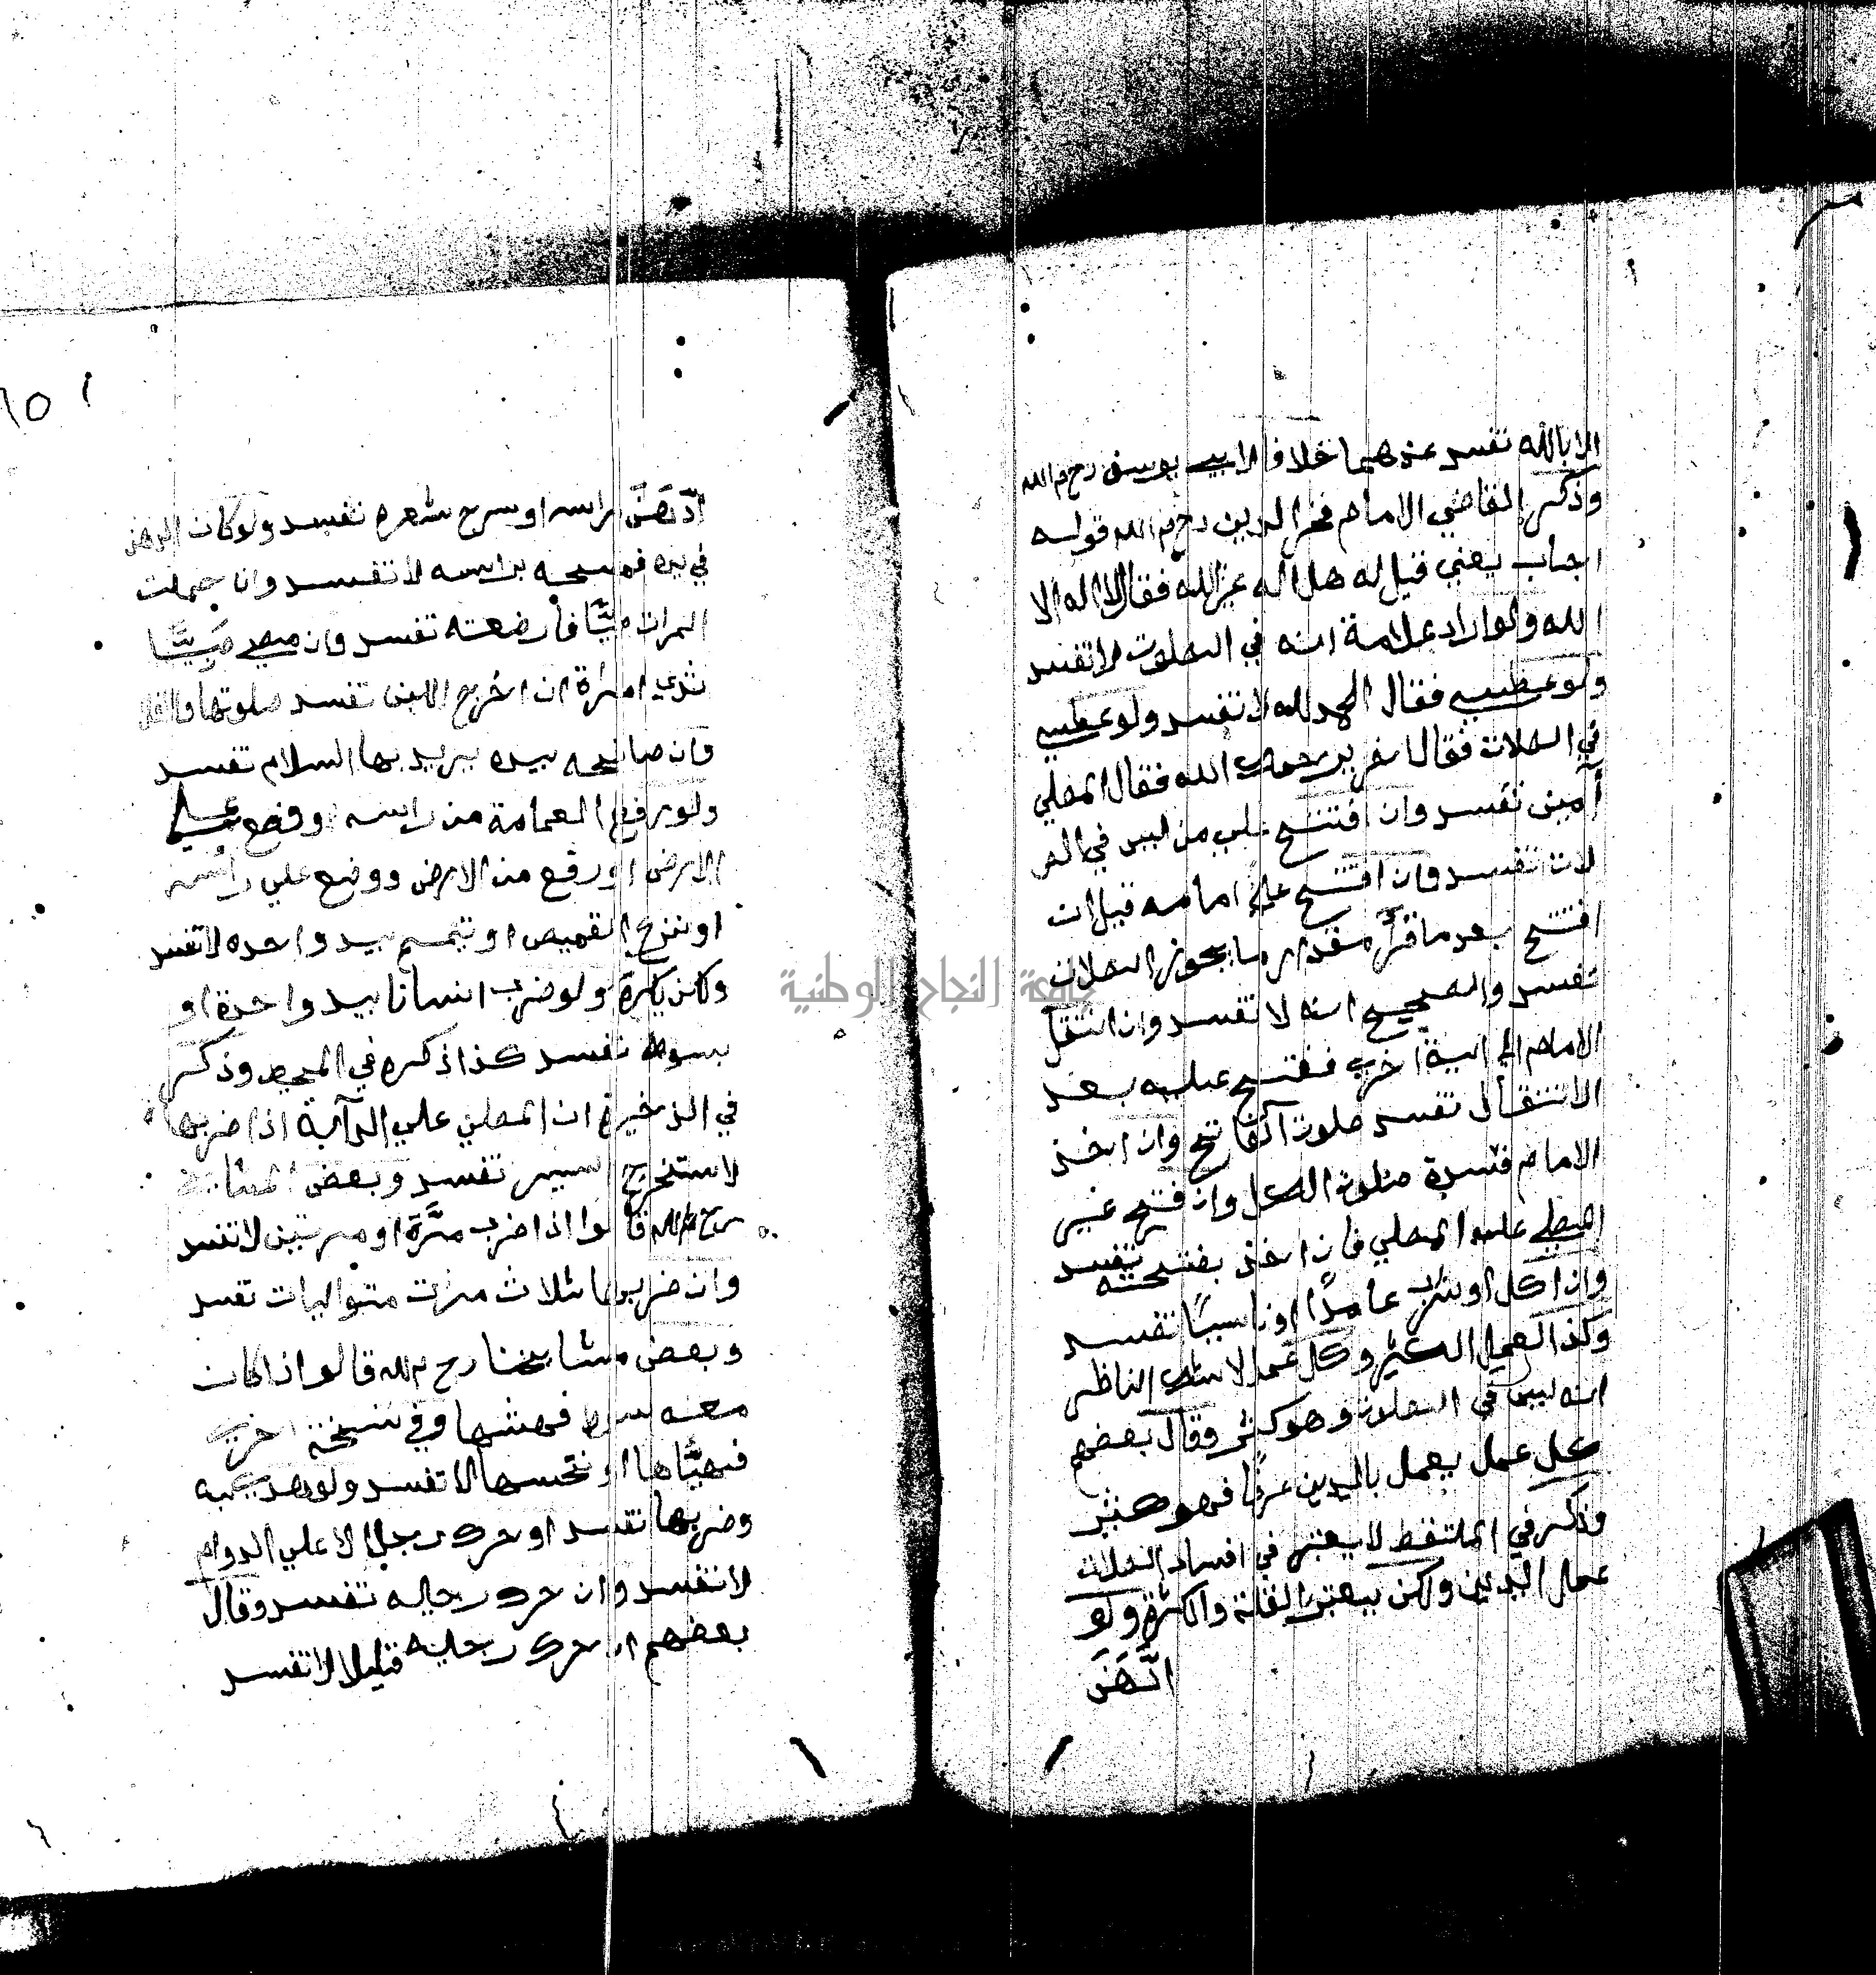 الا بالله تفسد عندهما خلافا لابي يوسف رحم الله
وذكر القاضي الامام فخر الدين رحم الله قوله
اجاب يعني قيل له هل اله غير الله فقال لا اله الا
الله ولو اراد علامة انه في الصلوت لا تفسد
ولو عطس فقال الحمد لله لا تفسد ولو عطس
في الصلات فقال اخر يرحمك الله فقال المصلي
آمين تفسد وان افتتح علي من ليس في الص
لات تفسد وان افتتح علي امامه قيل ان
افتتح بعد ما قرأ مقدار ما يجوز الصلات
تفسد والصحيح انه لا تفسد وان انتقل
الامام الي اية اخري ففتح عليه بعد
الانتقال تفسد صلوت الفاتح وان اخذ
الامام فسدة صلوت الكل وان فتح غير
المصلي علي المصلي فان اخذ بفتحته تفسد
وان اكل او شرب عامدًا او ناسيًا تفسد
وكذا العمل الكثير وكل عمل لا يشك الناظر
انه ليس في الصلات وهو كثير وقال بعضهم
كل عمل يعمل باليدين عرفًا فهو كثير
وذكر في الملتقط لا يعتبر في افساد الصلات
عمل اليدين ولكن يعتبر القلة والكثرة ولو
ادَّهَنَ
٦٥
ادَّهَنَ راسه او سرح شعره تفسد ولو كان الدهن
في يده فمسحه براسه لا تفسد وان حملت
المرات صبيًّا فأرضعته تفسد وان مص صَبِيًّا
ثدي امرأة ان اخرج اللبن تفسد صلوتها والافلا
وان صافحه بيده يريد بها السلام تفسد
ولو رفع العمامة من راسه ووضع علي
الارض او رفع من الارض ووضع علي راسه
او نزع القميص او تعمم بيد واحده لا تفسد
وكن يكره ولو ضرب انسانا بيد واحدة او
بسوط تفسد كذا ذكره في المحيط وذكر
في الذخيرة ان المصلي علي الدآبة اذا ضربها
لاستخراج السير تفسد وبعض المشايخ
رحم الله قالوا اذا ضرب مرَّة او مرتين لا تفسد
وان ضربها ثلاث مرات متواليات تفسد
وبعض مشايخنا رح م الله قالوا اذا كان
معه سوط فهشها وفي نسخة اخري
فهيَّأها او نخسها لا تفسد ولو
وضربها تفسد او حرك رجلا لا علي الدوام
لا تفسد وان حرك رجليه تفسد وقال
بعضهم ان حرك رجليه قليلا لا تفسد
جامعة النجاح الوطنية